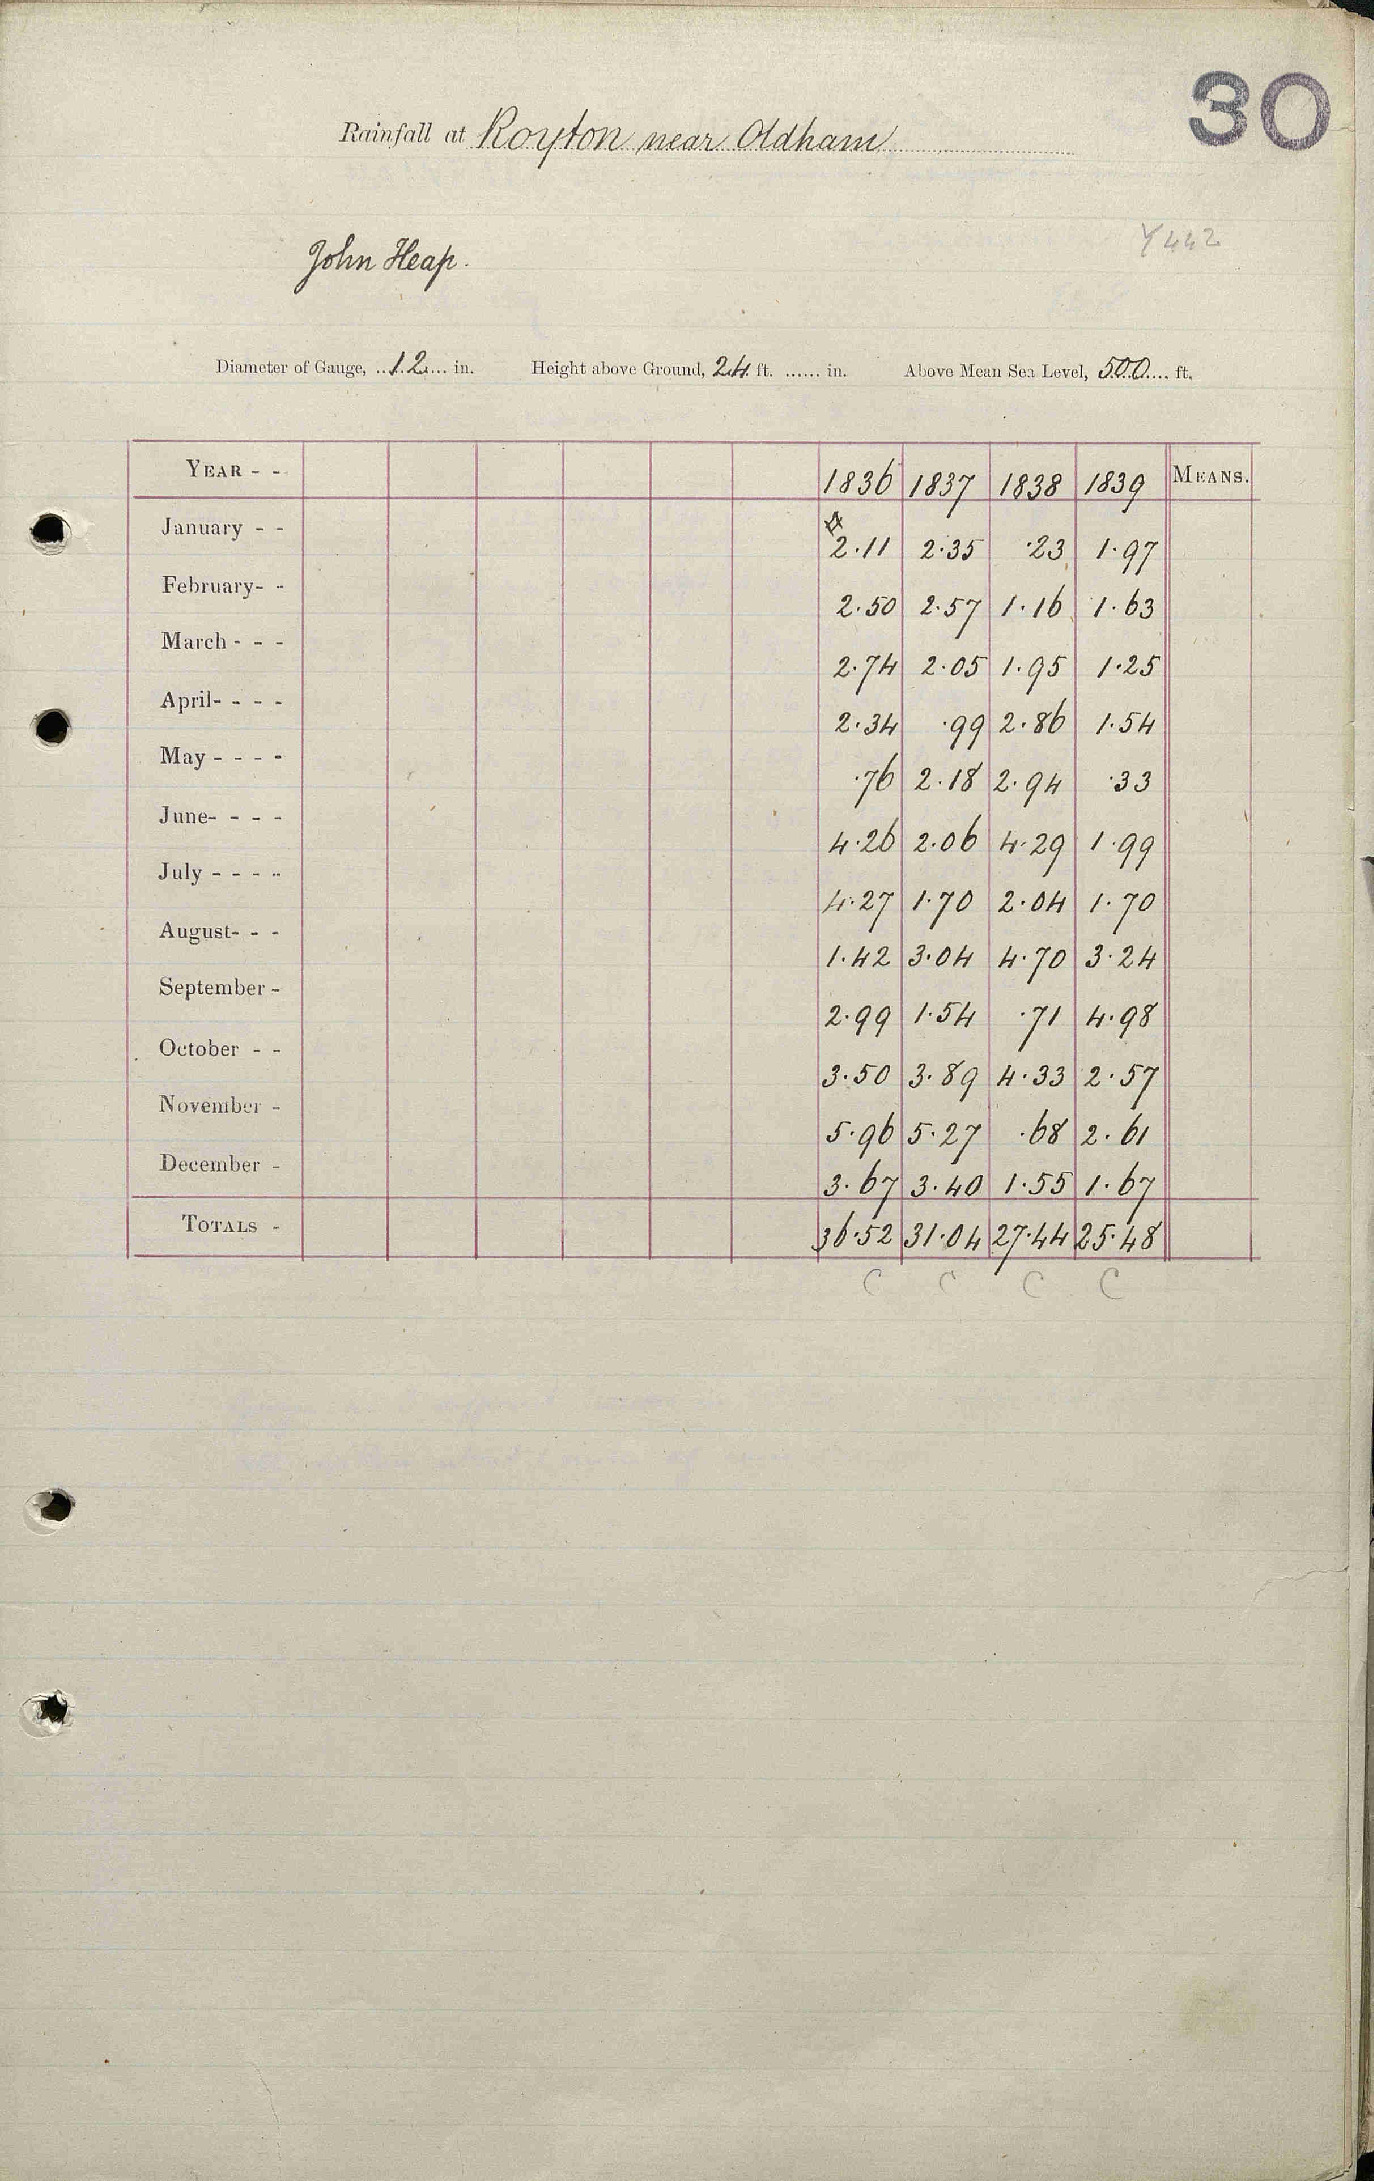 30
Rainfall at Royton near Oldham
Y442
John Heap.
Diameter of Gauge, 12 in. Height above Ground, 24 ft. ...... in. Above Mean Sea Level, 500 ft.
YEAR - - 1836 1837 1838 1839 MEANS.
January - - 2.11 2.35 .23 1.97
February- - 2.50 2.57 1.16 1.63
March - - - 2.74 2.05 1.95 1.25
April- - - - 2.34 .99 2.86 1.54
May - - - - .76 2.18 2.94 .33
June- - - - 4.26 2.06 4.29 1.99
July - - - - 4.27 1.70 2.04 1.70
August- - - 1.42 3.04 4.70 3.24
September - 2.99 1.54 .71 4.98
October - - 3.50 3.89 4.33 2.57
November - 5.96 5.27 .68 2.61
December - 3.67 3.40 1.55 1.67
TOTALS - 36.52 31.04 27.44 25.48
C C C C